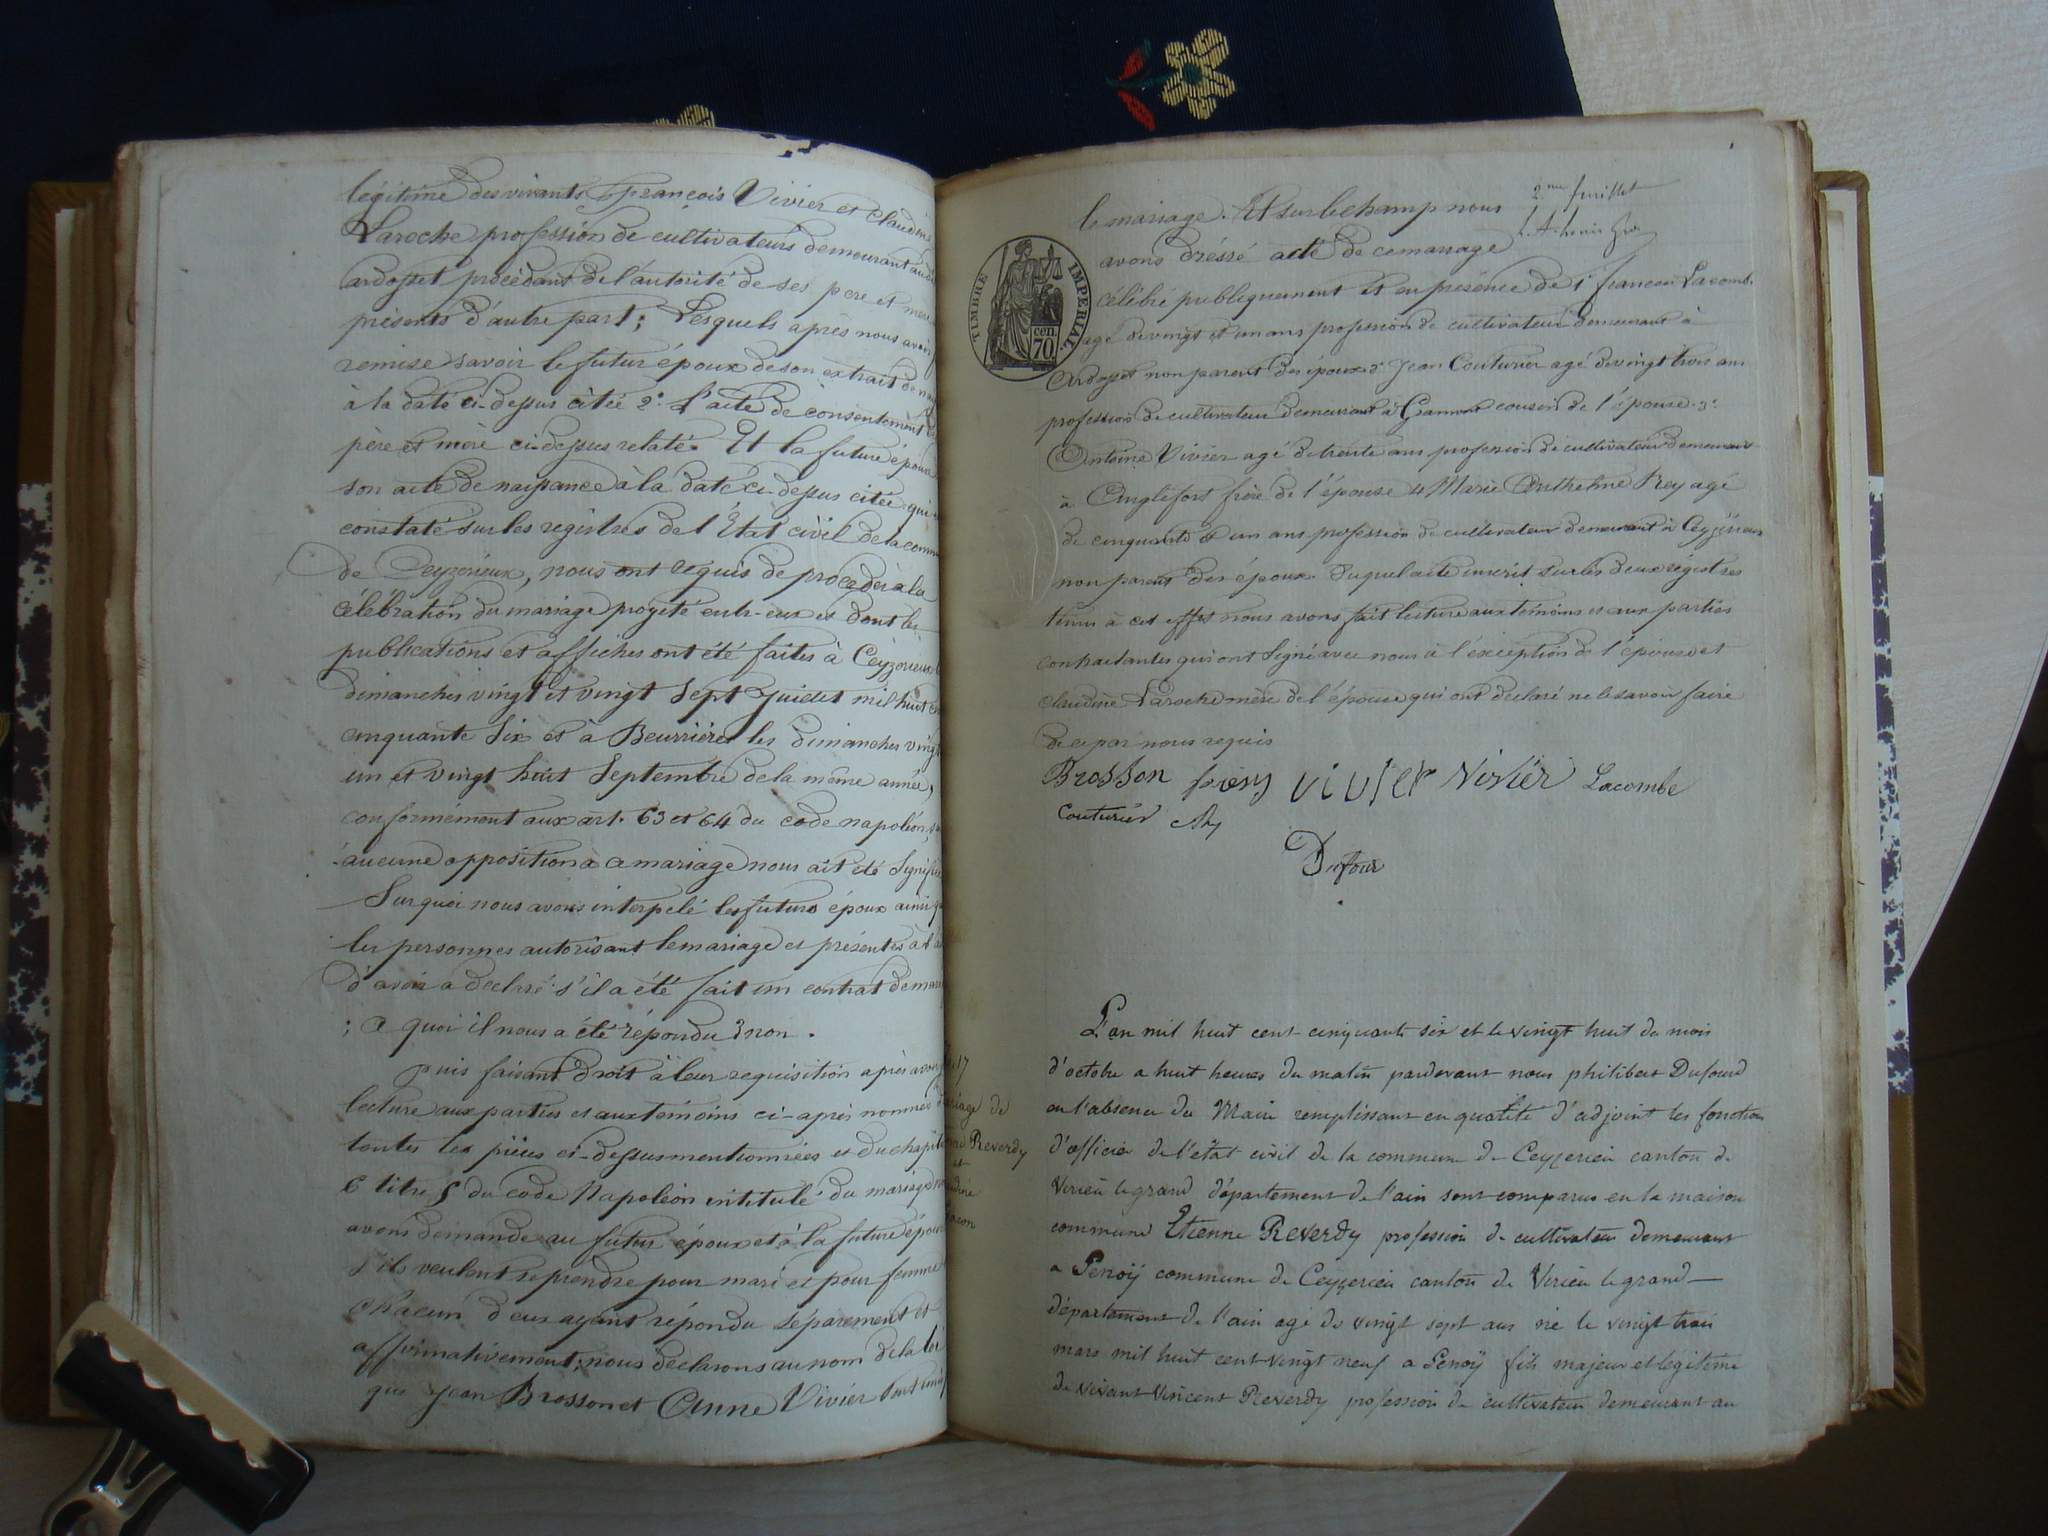 légitime des vivants françois Vivier et Claudine
Laroche profession de cultivateurs demeurant au dit
ardosset procédant de l'autorité de ses pere et mere
présents d'autre part; Lesquels après nous avoir
remise savoir le futur époux de son extrait de
à la date ci-dessus citée 2° l'acte de consentement
père et mère ci-dessus relaté. Et la future épouse
son acte de naissance à la date ci-dessus citée qui
constaté sur les registres de l'État civil de la comm
de Ceyzérieux, nous ont requis de procéder à la
célébration du mariage projeté entr-eux et dont les
publications et affiches ont été faites à Ceyzerieux
dimanches vingt et vingt sept Juillet mil huit
cinquante six et à Beurrières les dimanches vingt
un et vingt huit Septembre de la même année,
conformément aux art. 63 et 64 du code napoléon,
aucune opposition à ce mariage nous ait été signifiée
Sur quoi nous avons interpelé les futurs époux ainsi q
les personnes autorisant le mariage et présentes à l'
d'avoir a déclaré s'il a été fait un contrat de mar
; a quoi il nous a été répondu non.
puis faisant droit à leur requisition après avoir
lecture aux parties et aux témoins ci-après nommés
toutes les pièces ci-dessus mentionnées et du chapit
6 titre 5 du code Napoléon intitulé du mariage
avons demandé au futur époux et à la future épouse
s'ils veulent se prendre pour mari et pour femme
chacun d'eux ayant répondu séparement et
affirmativement; nous déclarons au nom de la loi
que Jean Brosson et Anne Vivier sont unis
2me feuillet
le mariage. Et sur le champ nous
avons dréssé acté de ce mariage
TIMBRE IMPERIAL
cen.
70
célébré publiquement et en présence de 1° francois Lacombe
agé de vingt et un ans profession de cultivateur demeurant à
Ardosset non parent des époux 2° Jean Couturier agé de vingt trois ans
profession de cultivateur demeurant à cousin de l'épouse. 3°
Antoine Vivier agé de trente ans profession de cultivateur demeurant
à Anglefort frère de l'épouse 4 Marie Anthelme Prey agé
de cinquante et un ans profession de cultivateur demeurant à Ceyzérieux
non parent des époux. Duquel acte inscrit sur les deux régistres
tenus à cet effet nous avons fait lecture aux témoins et aux parties
contractantes qui ont signé avec nous à l'éxception de l'épouse et
claudine Laroche mère de l'épouse qui ont declaré ne le savoir faire
de ce par nous requis
Brosson prey vivier Vivier Lacombe
couturier
Dufour
17
riage de
Reverdy
et
L'an mil huit cent cinquante six et le vingt huit du mois
d'octobre a huit heures du matin pardevant nous philibert Dufourd
en l'absence du Maire remplissant en qualité d'adjoint les fonction
d'officier de l'état civil de la commune de Ceyzerieu canton de
Virieu le grand département de l'ain sont comparus en la maison
commune Etienne Reverdy profession de cultivateur demeurant
a Senoÿ commune de Ceyzerieu canton de Virieu le grand
département de l'ain agé de vingt sept ans né le vingt trois
mars mil huit cent vingt neuf a Senoÿ fils majeur et legitime
de vivant Vincent Reverdy profession de cultivateur demeurant au